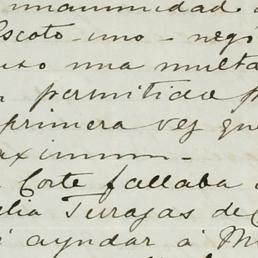 unanimidad
Escoto-uno-nego
uso una multa
permitido p
primera vez que
aximum-
Corte fallaba
lia Terrazas de C
ayudar á Mi